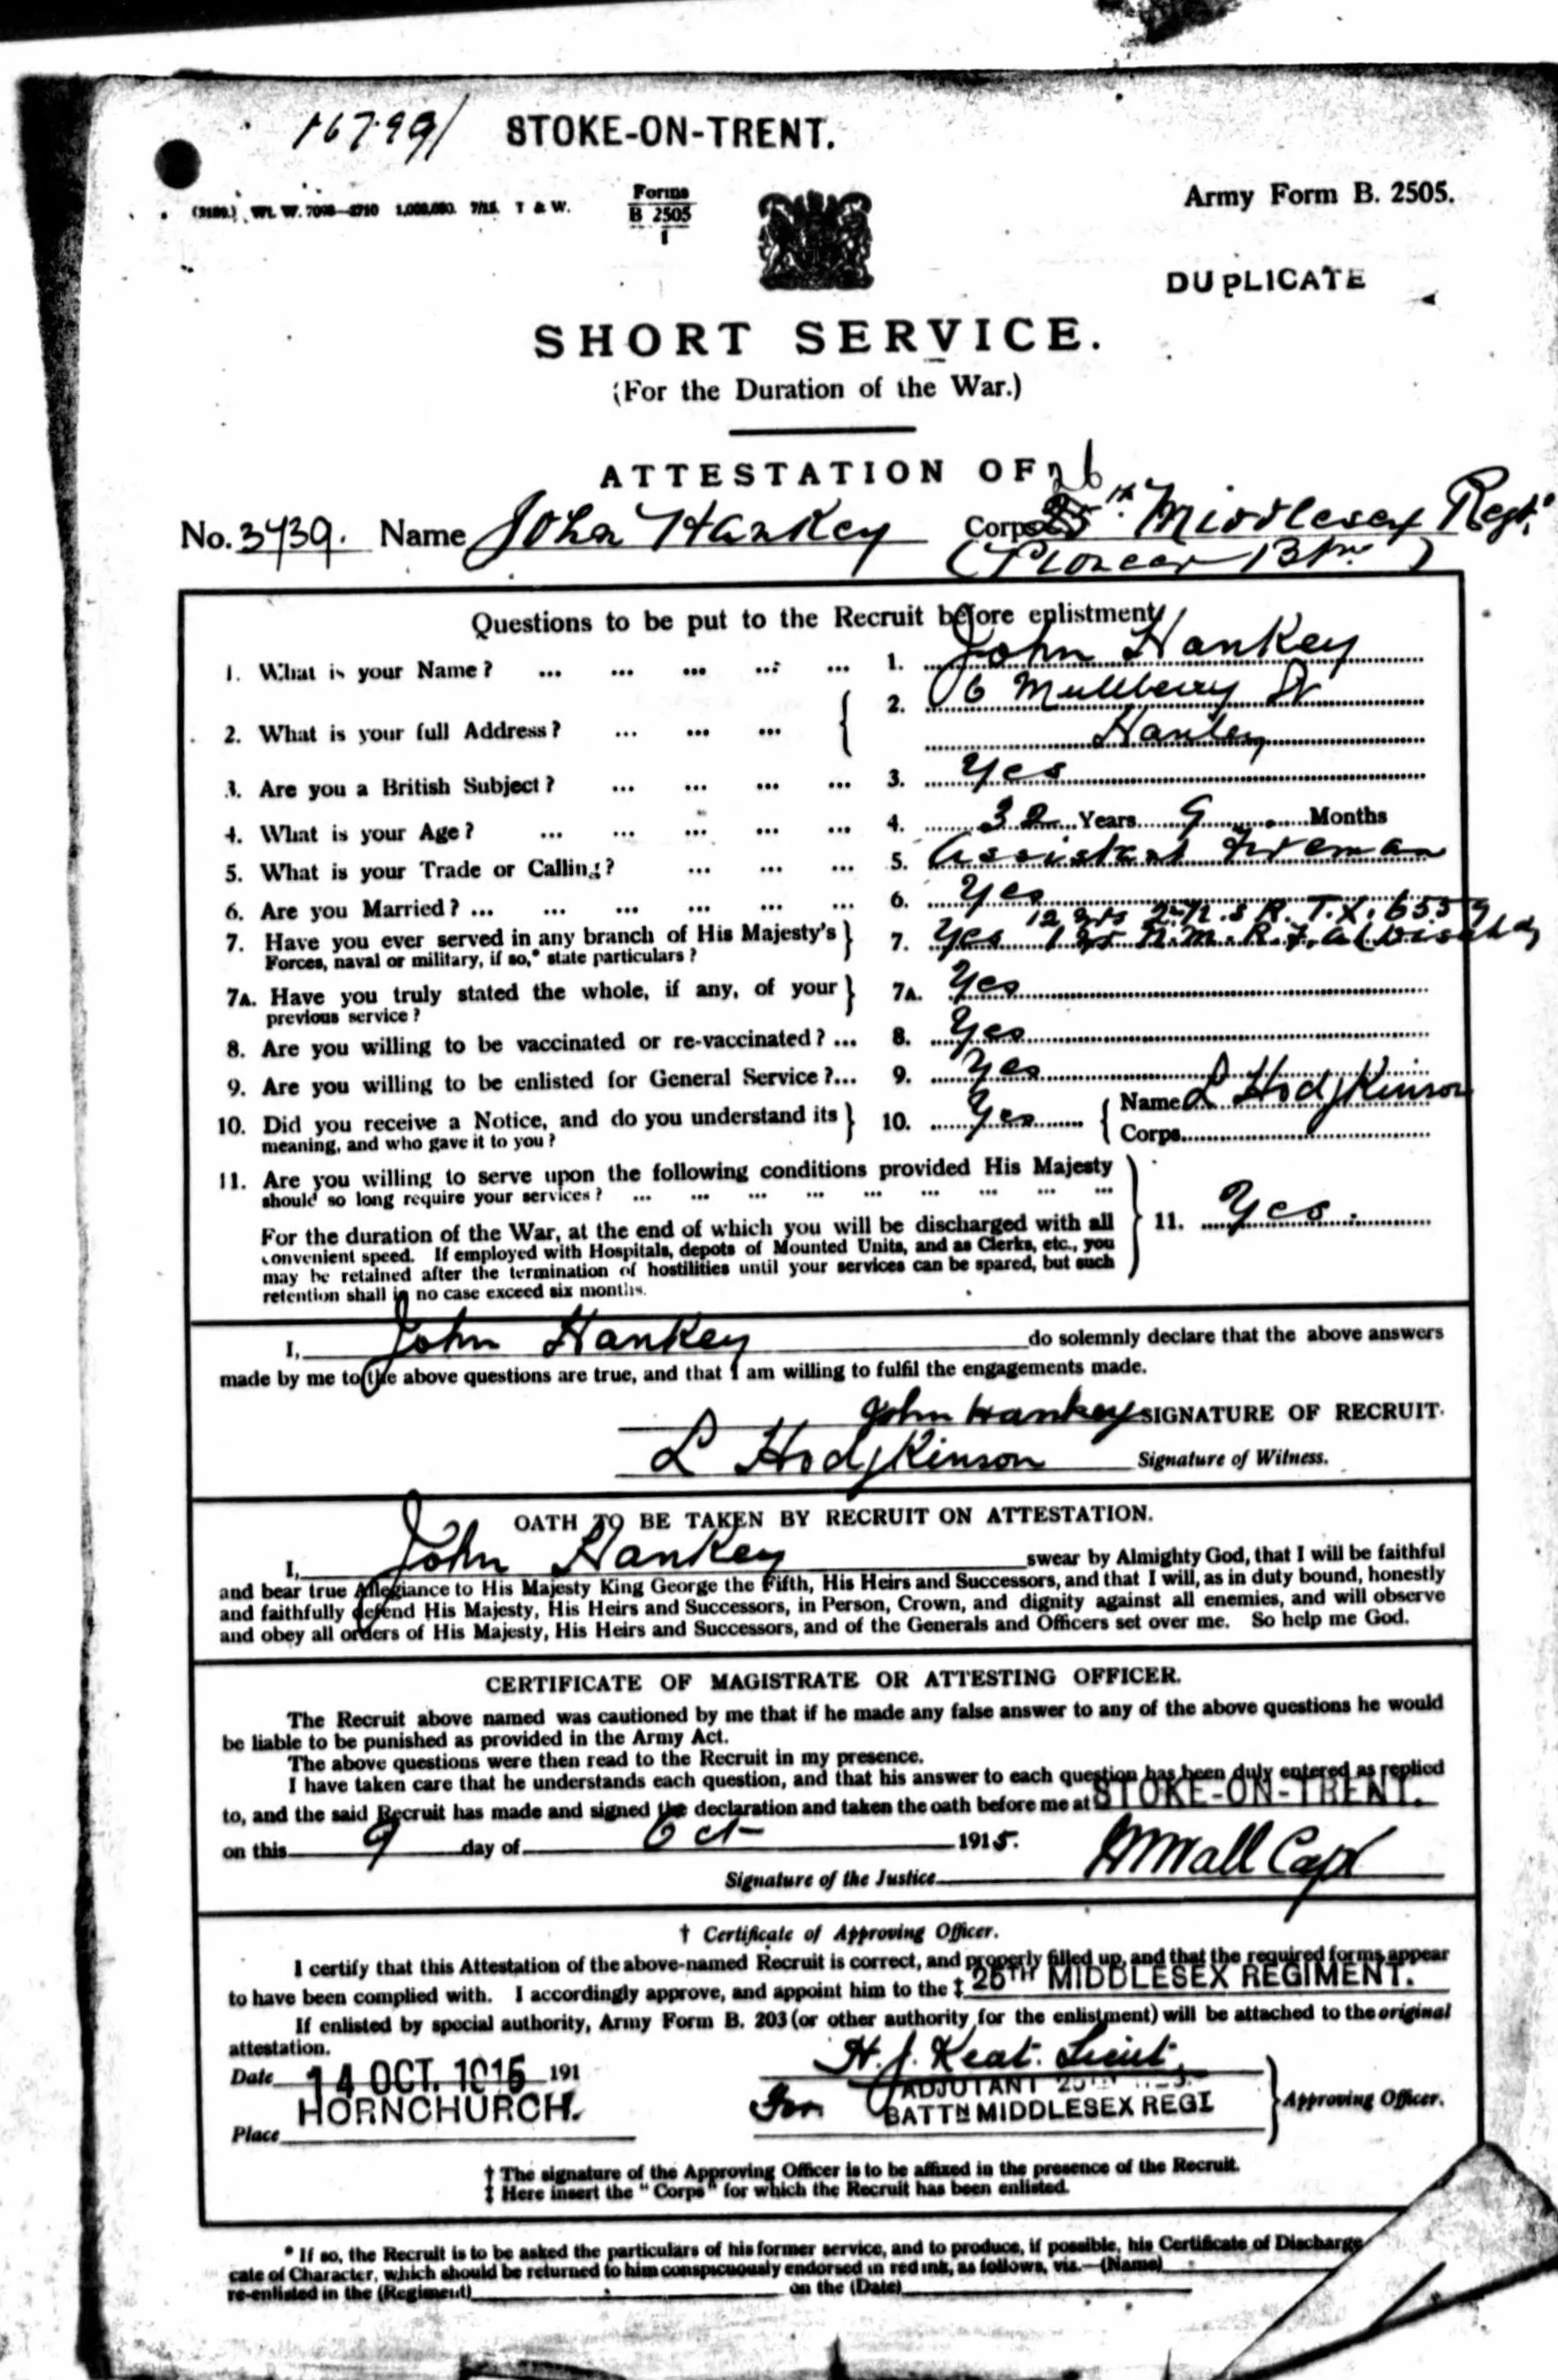 16799/ STOKE-ON-TRENT.
Forms
B 2505
1
Army Form B. 2505.
DUPLICATE
SHORT SERVICE.
(For the Duration of the War.)
ATTESTATION OF
26
No. 3739. Name John Hankey Corps 25th Middlesex Regt.
(Pioneer Btn.)
Questions to be put to the Recruit before enlistment
1. What is your Name? ... ... ... ... ... 1. John Hankey
2. What is your full Address? ... ... ... 2. 6 Mullberry St
Hanley
3. Are you a British Subject? ... ... ... ... 3. Yes
4. What is your Age? ... ... ... ... ... 4. 32 Years 9 Months
5. What is your Trade or Calling? ... ... ... 5. Assistant Fireman
6. Are you Married? ... ... ... ... ... ... 6. Yes
7. Have you ever served in any branch of His Majesty's
Forces, naval or military, if so,* state particulars? 7. Yes
7A. Have you truly stated the whole, if any, of your
previous service? 7A. Yes
8. Are you willing to be vaccinated or re-vaccinated? ... 8. Yes
9. Are you willing to be enlisted for General Service?... 9. Yes
10. Did you receive a Notice, and do you understand its
meaning, and who gave it to you? 10. Yes Name L Hodgkinson
Corps
11. Are you willing to serve upon the following conditions provided His Majesty
should so long require your services? ... ... ... ... ... ... ... ... ...
For the duration of the War, at the end of which you will be discharged with all
convenient speed. If employed with Hospitals, depots of Mounted Units, and as Clerks, etc., you
may be retained after the termination of hostilities until your services can be spared, but such
retention shall in no case exceed six months. 11. Yes.
I, John Hankey do solemnly declare that the above answers
made by me to the above questions are true, and that I am willing to fulfil the engagements made.
John Hankey SIGNATURE OF RECRUIT.
L Hodgkinson Signature of Witness.
OATH TO BE TAKEN BY RECRUIT ON ATTESTATION.
I, John Hankey swear by Almighty God, that I will be faithful
and bear true Allegiance to His Majesty King George the Fifth, His Heirs and Successors, and that I will, as in duty bound, honestly
and faithfully defend His Majesty, His Heirs and Successors, in Person, Crown, and dignity against all enemies, and will observe
and obey all orders of His Majesty, His Heirs and Successors, and of the Generals and Officers set over me. So help me God.
CERTIFICATE OF MAGISTRATE OR ATTESTING OFFICER.
The Recruit above named was cautioned by me that if he made any false answer to any of the above questions he would
be liable to be punished as provided in the Army Act.
The above questions were then read to the Recruit in my presence.
I have taken care that he understands each question, and that his answer to each question has been duly entered as replied
to, and the said Recruit has made and signed the declaration and taken the oath before me at STOKE-ON-TRENT.
on this 9 day of Oct 1915.
Signature of the Justice Wall Capt
† Certificate of Approving Officer.
I certify that this Attestation of the above-named Recruit is correct, and properly filled up, and that the required forms appear
to have been complied with. I accordingly approve, and appoint him to the ‡ 26TH MIDDLESEX REGIMENT.
If enlisted by special authority, Army Form B. 203 (or other authority for the enlistment) will be attached to the original
attestation.
H. J. Keat. Lieut.
Date 14 OCT. 1915 191
ADJUTANT
HORNCHURCH.
For BATTN MIDDLESEX REGT Approving Officer.
Place
† The signature of the Approving Officer is to be affixed in the presence of the Recruit.
‡ Here insert the "Corps" for which the Recruit has been enlisted.
* If so, the Recruit is to be asked the particulars of his former service, and to produce, if possible, his Certificate of Discharge
cate of Character, which should be returned to him conspicuously endorsed in red ink, as follows, viz.—(Name)
re-enlisted in the (Regiment) on the (Date)